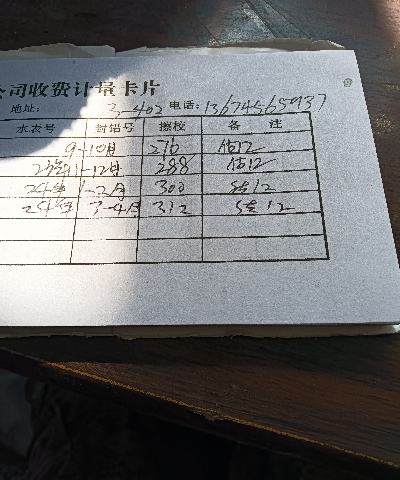 公司收费计量卡片
地址: 3-402 电话: 13674565937
水衣号 封铅号 擦校 备 注
9-10月 276 估12
23年11-12月 288 估12
24年 1-2月 300 估12
24年 3-4月 312 估12